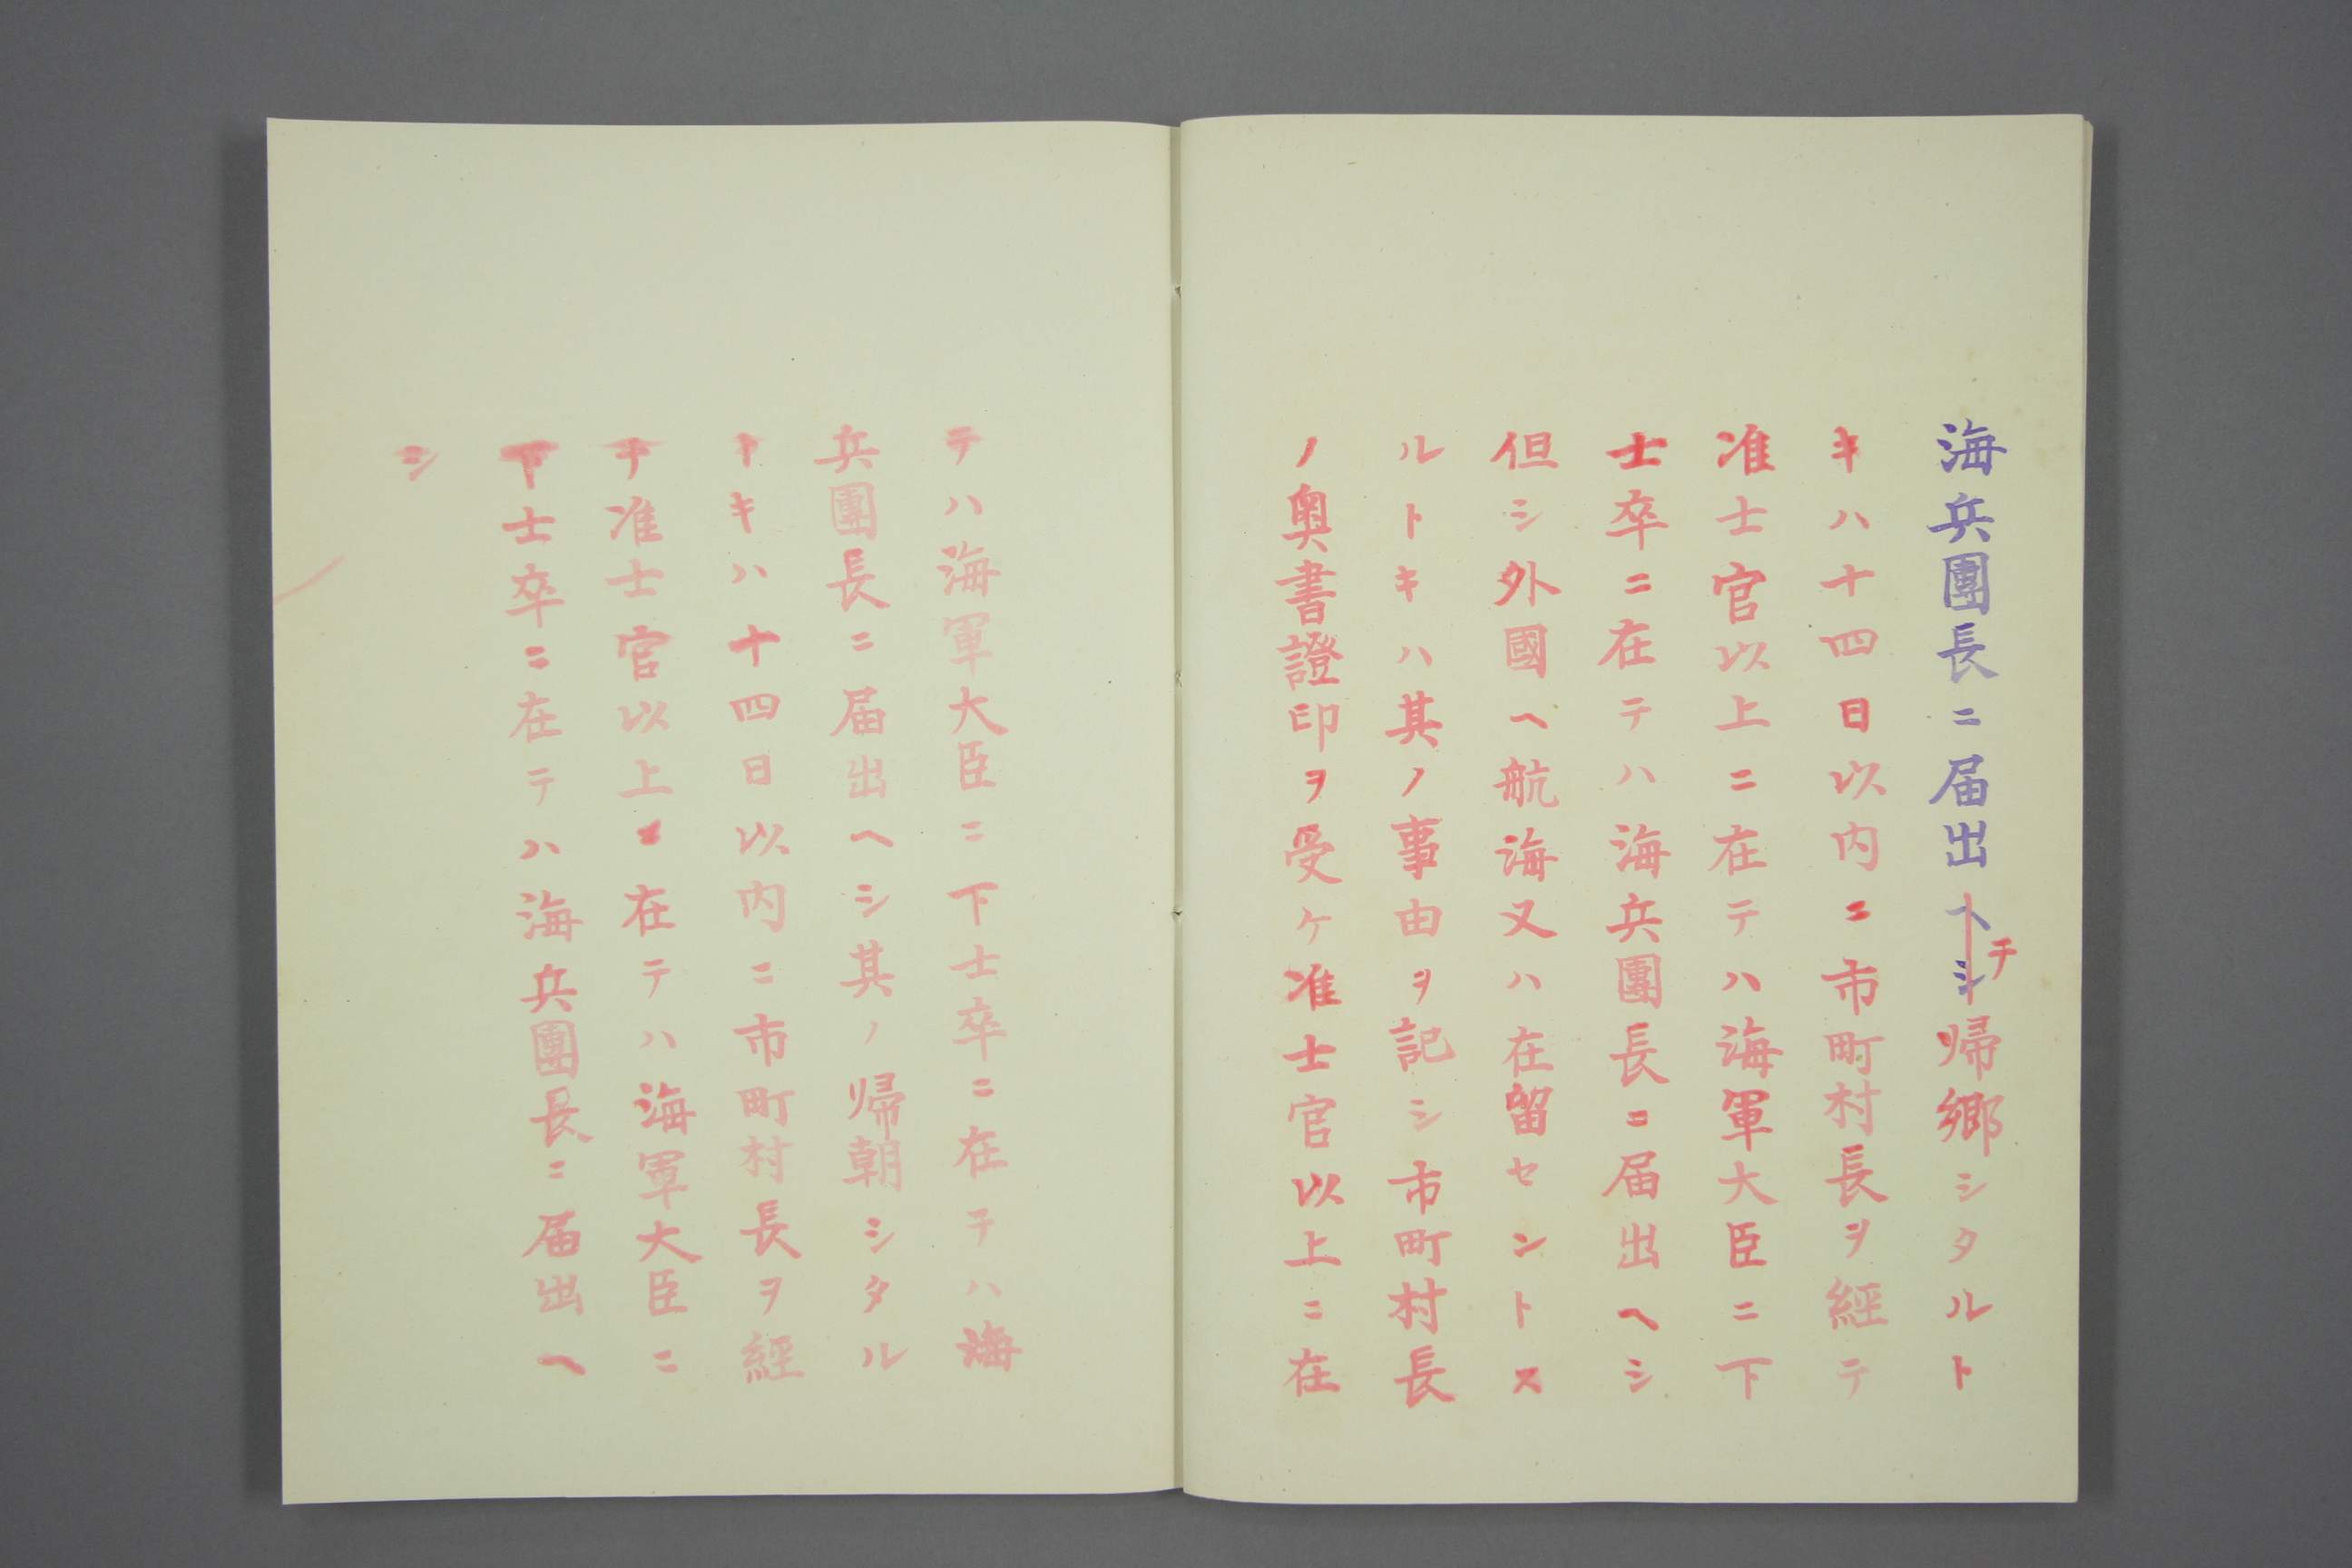 海兵團長ニ届出ヘシテ帰郷シタルト
キハ十四日以内ニ市町村長ヲ經テ
准士官以上ニ在テハ海軍大臣ニ下
士卒ニ在テハ海兵團長ニ届出ヘシ
但シ外國ヘ航海又ハ在留セントス
ルトキハ其ノ事由ヲ記シ市町村長
ノ奥書證印ヲ受ケ准士官以上ニ在
テハ海軍大臣ニ下士卒ニ在テハ海
兵團長ニ届出ヘシ其ノ帰朝シタル
トキハ十四日以内ニ市町村長ヲ經
テ准士官以上ニ在テハ海軍大臣ニ
下士卒ニ在テハ海兵團長ニ届出ヘ
シ